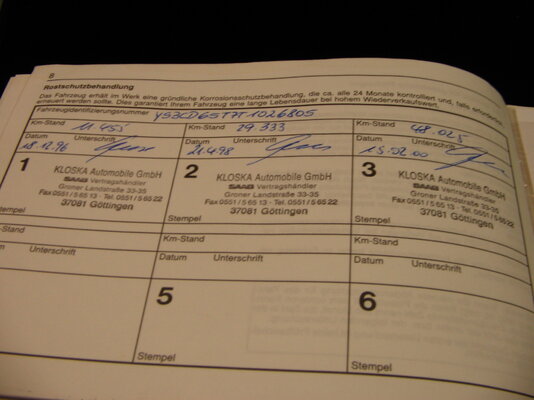 8
Rostschutzbehandlung
Das Fahrzeug erhält im Werk eine gründliche Korrosionsschutzbehandlung, die ca. alle 24 Monate kontrolliert und, falls erforderlich,
erneuert werden sollte. Dies garantiert Ihrem Fahrzeug eine lange Lebensdauer bei hohem Wiederverkaufswert.
Fahrzeugidentifizierungsnummer
Km-Stand 11 455 Km-Stand 29 333 Km-Stand 48.025
Datum Unterschrift Datum Unterschrift Datum Unterschrift
18.12.96 21.4.98 15.02.00
1 2 3
KLOSKA Automobile GmbH KLOSKA Automobile GmbH KLOSKA Automobile GmbH
SAAB Vertragshändler SAAB Vertragshändler SAAB Vertragshändler
Groner Landstraße 33-35 Groner Landstraße 33-35 Groner Landstraße 33-35
Fax 0551/5 65 13 · Tel. 0551/5 65 22 Fax 0551/5 65 13 · Tel. 0551/5 65 22 Fax 0551/5 65 13 · Tel. 0551/5 65 22
37081 Göttingen 37081 Göttingen 37081 Göttingen
Stempel Stempel Stempel
Km-Stand Km-Stand Km-Stand
Unterschrift Datum Unterschrift Datum Unterschrift
5 6
Stempel Stempel